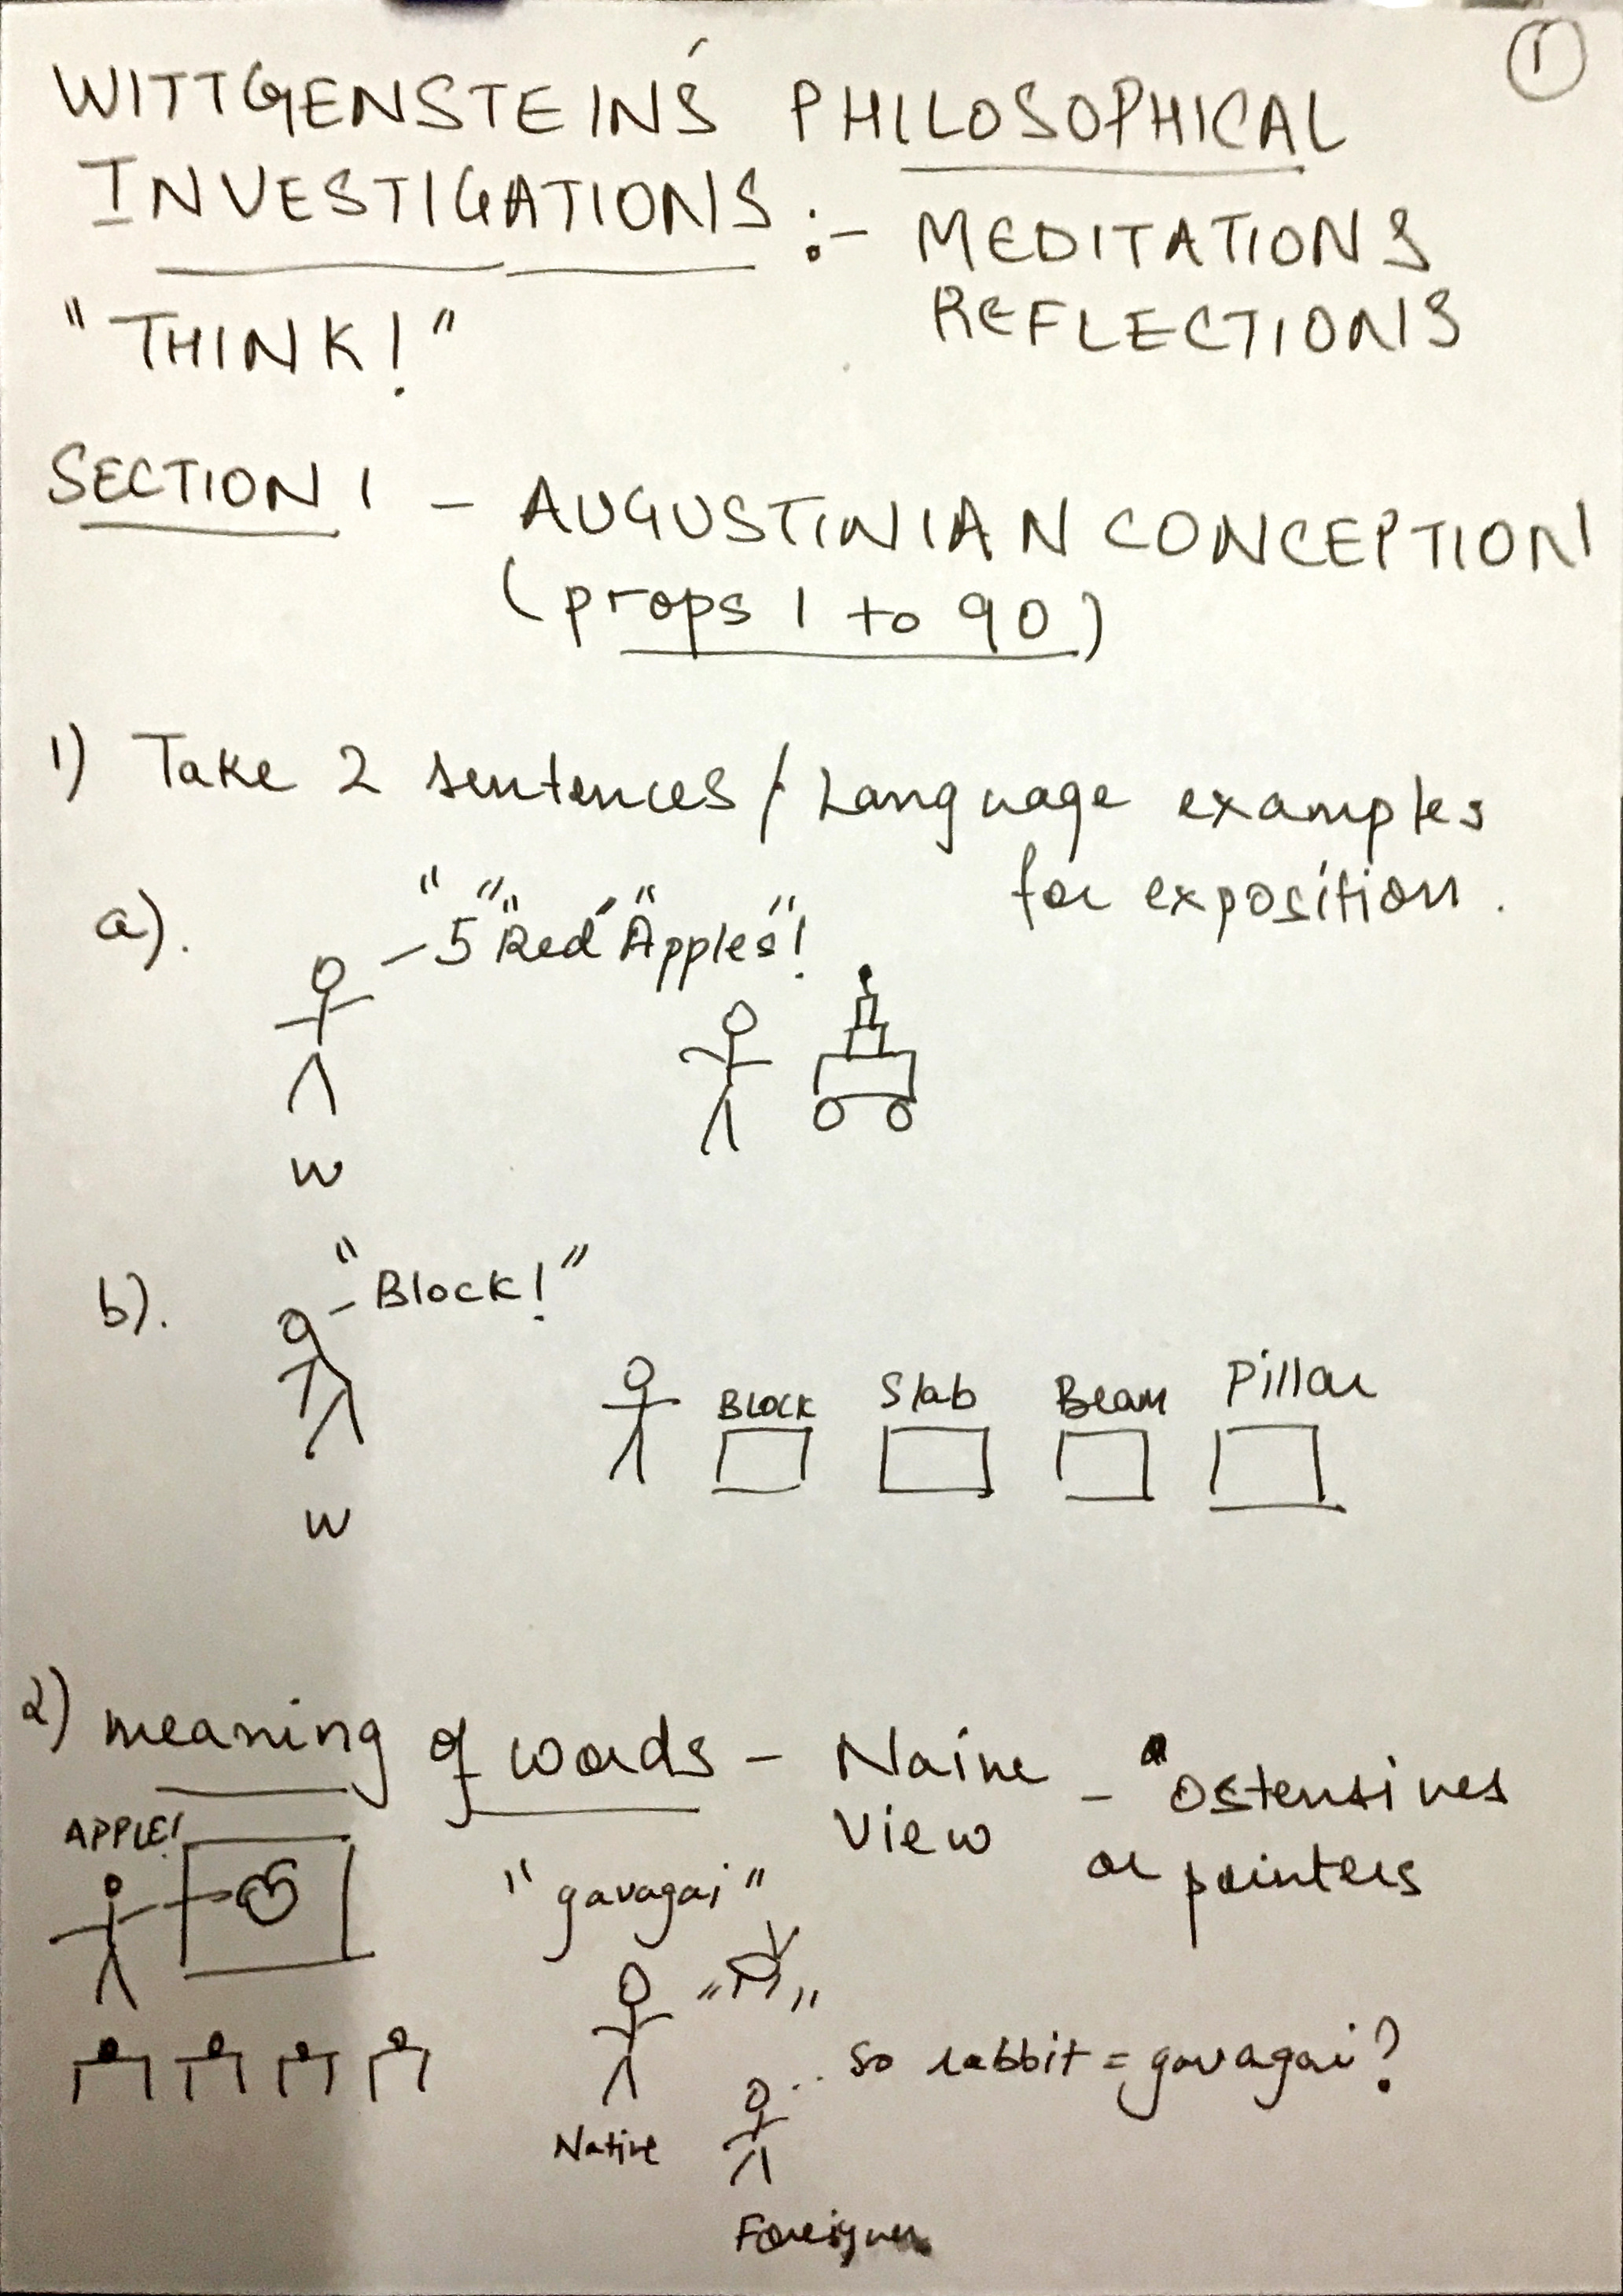 1
WITTGENSTEIN'S PHILOSOPHICAL
INVESTIGATIONS :- MEDITATIONS
REFLECTIONS
"THINK!"
SECTION 1 - AUGUSTINIAN CONCEPTION
(props 1 to 90)
1) Take 2 sentences / Language examples
for exposition.
a). "5" "Red" "Apples"!
W
b). "Block!"
BLOCK Slab Beam Pillar
W
2) meaning of words - Naive - Ostensives
View or pointers
APPLE!
"gavagai"
.. so rabbit = gavagai?
Native
Foreigner